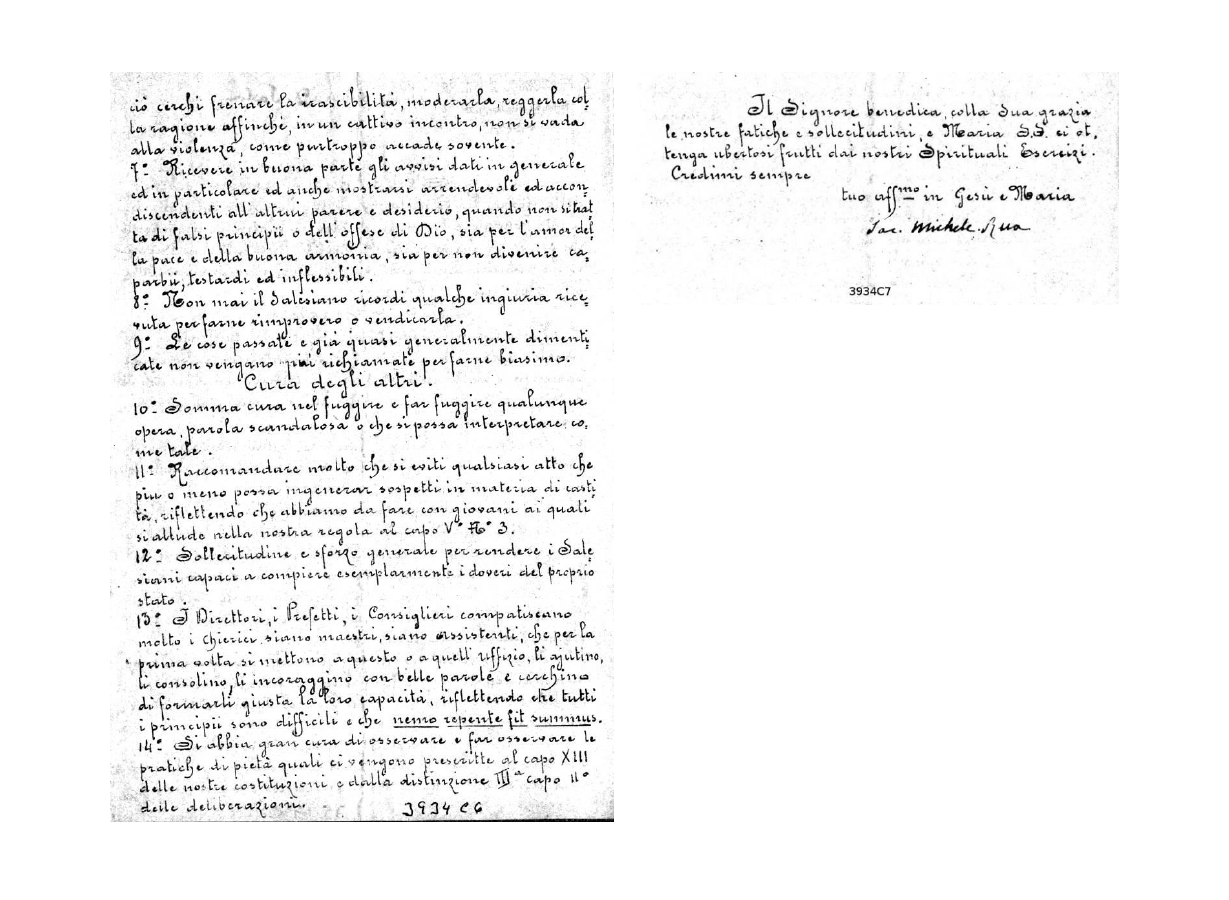 ciò cerchi frenare la irascibilità, moderarla, reggerla col,
la ragione affinchè, in un cattivo incontro, non si vada
alla violenza, come purtroppo accade sovente.
7º- Ricevere in buona parte gli avvisi dati in generale
ed in particolare ed anche mostrarsi arrendevole ed accon,
discendenti all'altrui parere e desiderio, quando non si trat
ta di falsi principii o dell'offese di Dio, sia per l'amor del,
la pace e della buona armonia, sia per non divenire ca,
parbii, testardi ed inflessibili.
8º- Non mai il Salesiano ricordi qualche ingiuria rice,
vuta per farne rimprovero o vendicarla.
9º- Le cose passate e già quasi generalmente dimenti,
cate non vengano più richiamate per farne biasimo.
Cura degli altri.
10º- Somma cura nel fuggire e far fuggire qualunque
opera, parola scandalosa o che si possa interpretare co,
me tale.
11º- Raccomandare molto che si eviti qualsiasi atto che
più o meno possa ingenerar sospetti in materia di casti,
tà, riflettendo che abbiamo da fare con giovani ai quali
si allude nella nostra regola al capo Vº Nº 3.
12º- Sollecitudine e sforzo generale per rendere i Sale,
siani capaci a compiere esemplarmente i doveri del proprio
stato.
13º- I Direttori, i Prefetti, i Consiglieri compatiscano
molto i chierici siano maestri, siano assistenti, che per la
prima volta si mettono a questo o a quell'uffizio, li ajutino,
li consolino, li incoraggino con belle parole e cerchino
di formarli giusta la loro capacità, riflettendo che tutti
i principii sono difficili e che nemo repente fit summus.
14º- Si abbia gran cura di osservare e far osservare le
pratiche di pietà quali ci vengono prescritte al capo XIII
delle nostre costituzioni e dalla distinzione IIIª capo IIº
delle deliberazioni.
3934 C6
Il Signore benedica, colla Sua grazia
le nostre fatiche e sollecitudini, e Maria S.S. ci ot,
tenga ubertosi frutti dai nostri Spirituali Esercizi.
Credimi sempre
tuo affmo in Gesù e Maria
Sac. Michele Rua
3934C7